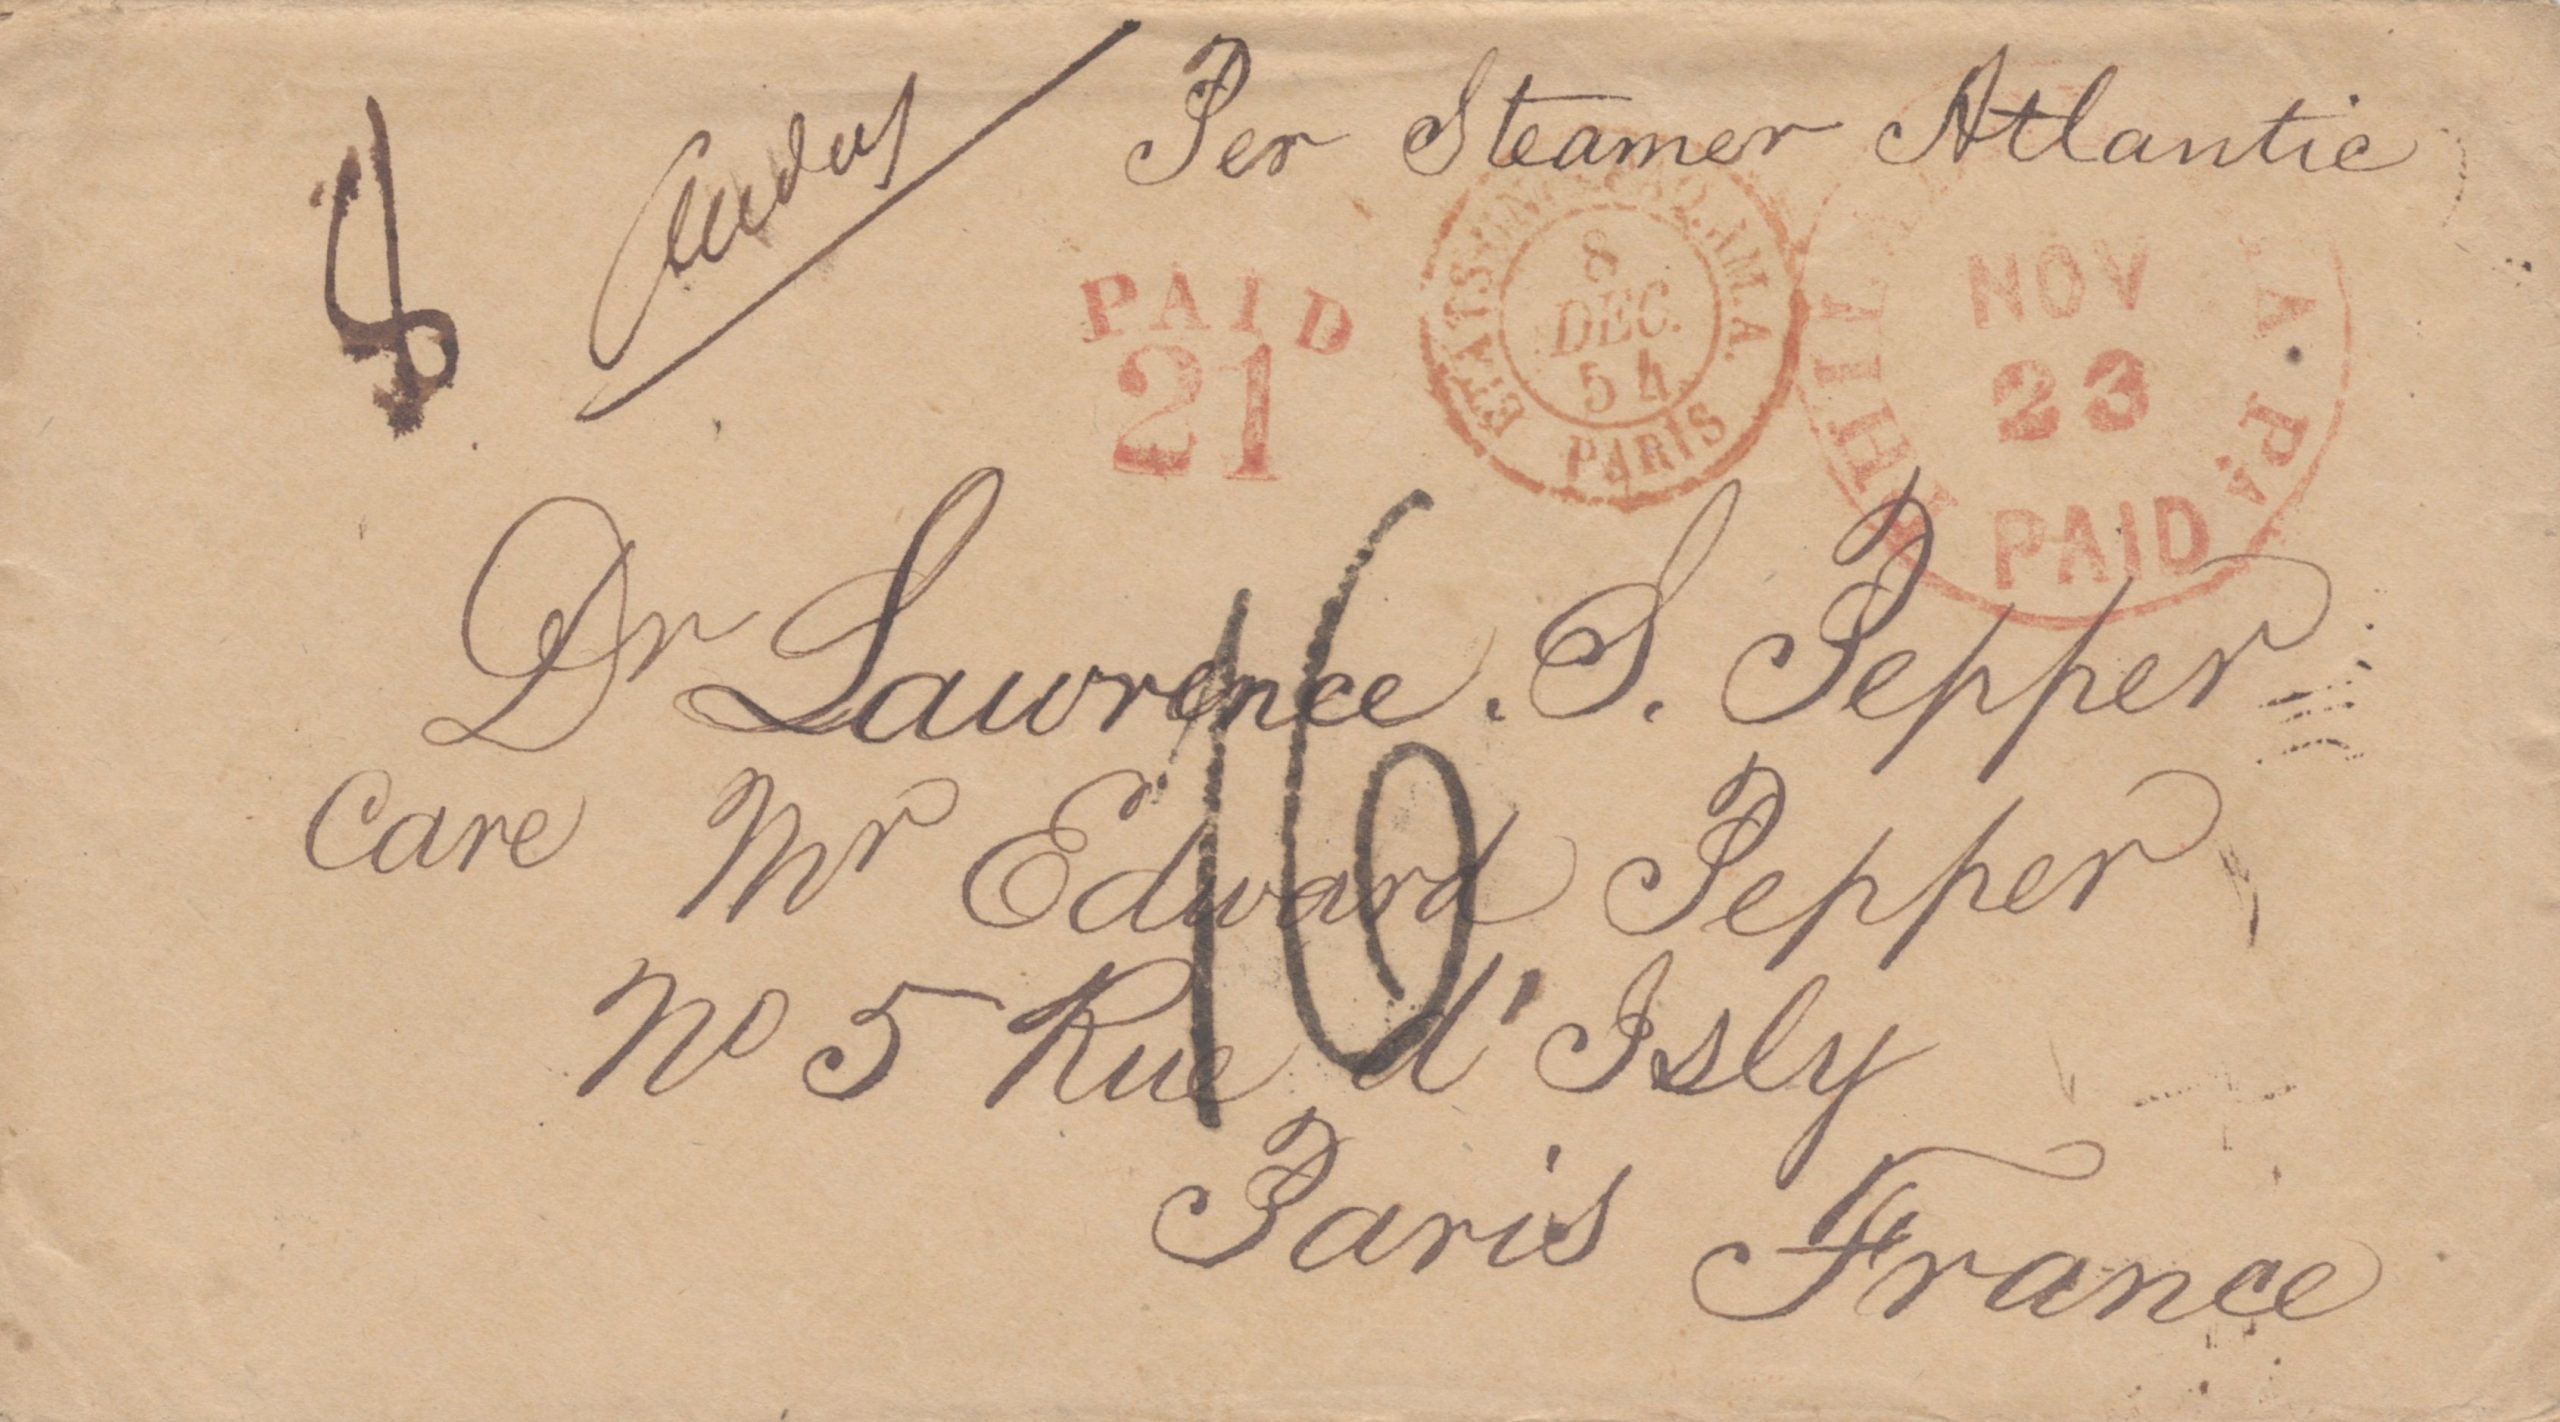 Per Steamer Atlantic
PAID
21
ETATS-UNIS
AM.A.
8
DEC.
54
PARIS
NOV
23
PAID
PA.
16
Dr Lawrence. S. Pepper
Care Mr Edward Pepper
No 5 Rue d'Isly
Paris France